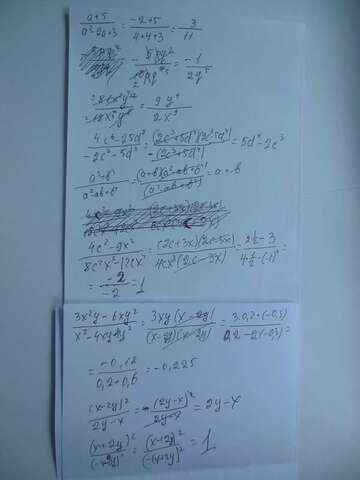 a+5/a²-2a+3 = -2+5/4+4+3 = 3/11
= -1/2y⁵
= 9y⁴/2x³
4c⁶-25d⁸/-2c³-5d⁴ = (2c³+5d⁴)(2c³-5d⁴)/-(2c³+5d⁴) = 5d⁴-2c³
a³+b³/a²-ab+b² = (a+b)(a²-ab+b²)/(a²-ab+b²) = a+b
4c²-9x²/8c²x²-12cx³ = (2c+3x)(2c-3x)/4cx²(2c-3x) =
= -2/-2 = 1
3x²y-6xy²/x²-4xy+4y² = 3xy(x-2y)/(x-2y)(x-2y) = 3·0,2·(-0,3)/0,2-2·(-0,3)
= -0,18/0,2+0,6 = -0,225
(x-2y)²/2y-x = (2y-x)²/2y-x = 2y-x
(x+2y)²/(-x-2y)² = (x+2y)²/(-(x+2y))² = 1